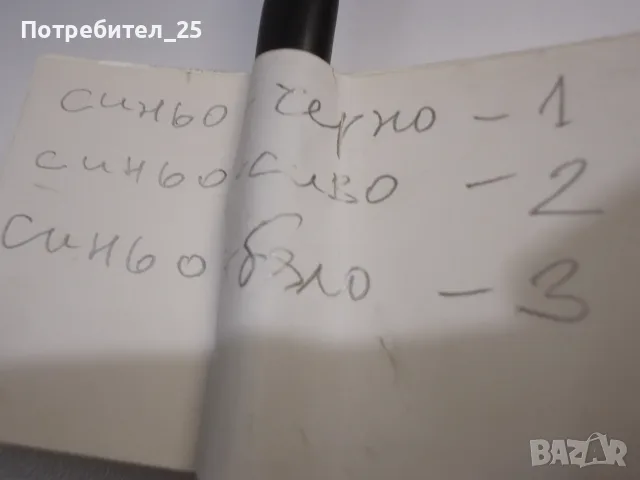 Потребител_25
синьо черно - 1
синьо сиво - 2
синьо бяло - 3
BAZAR